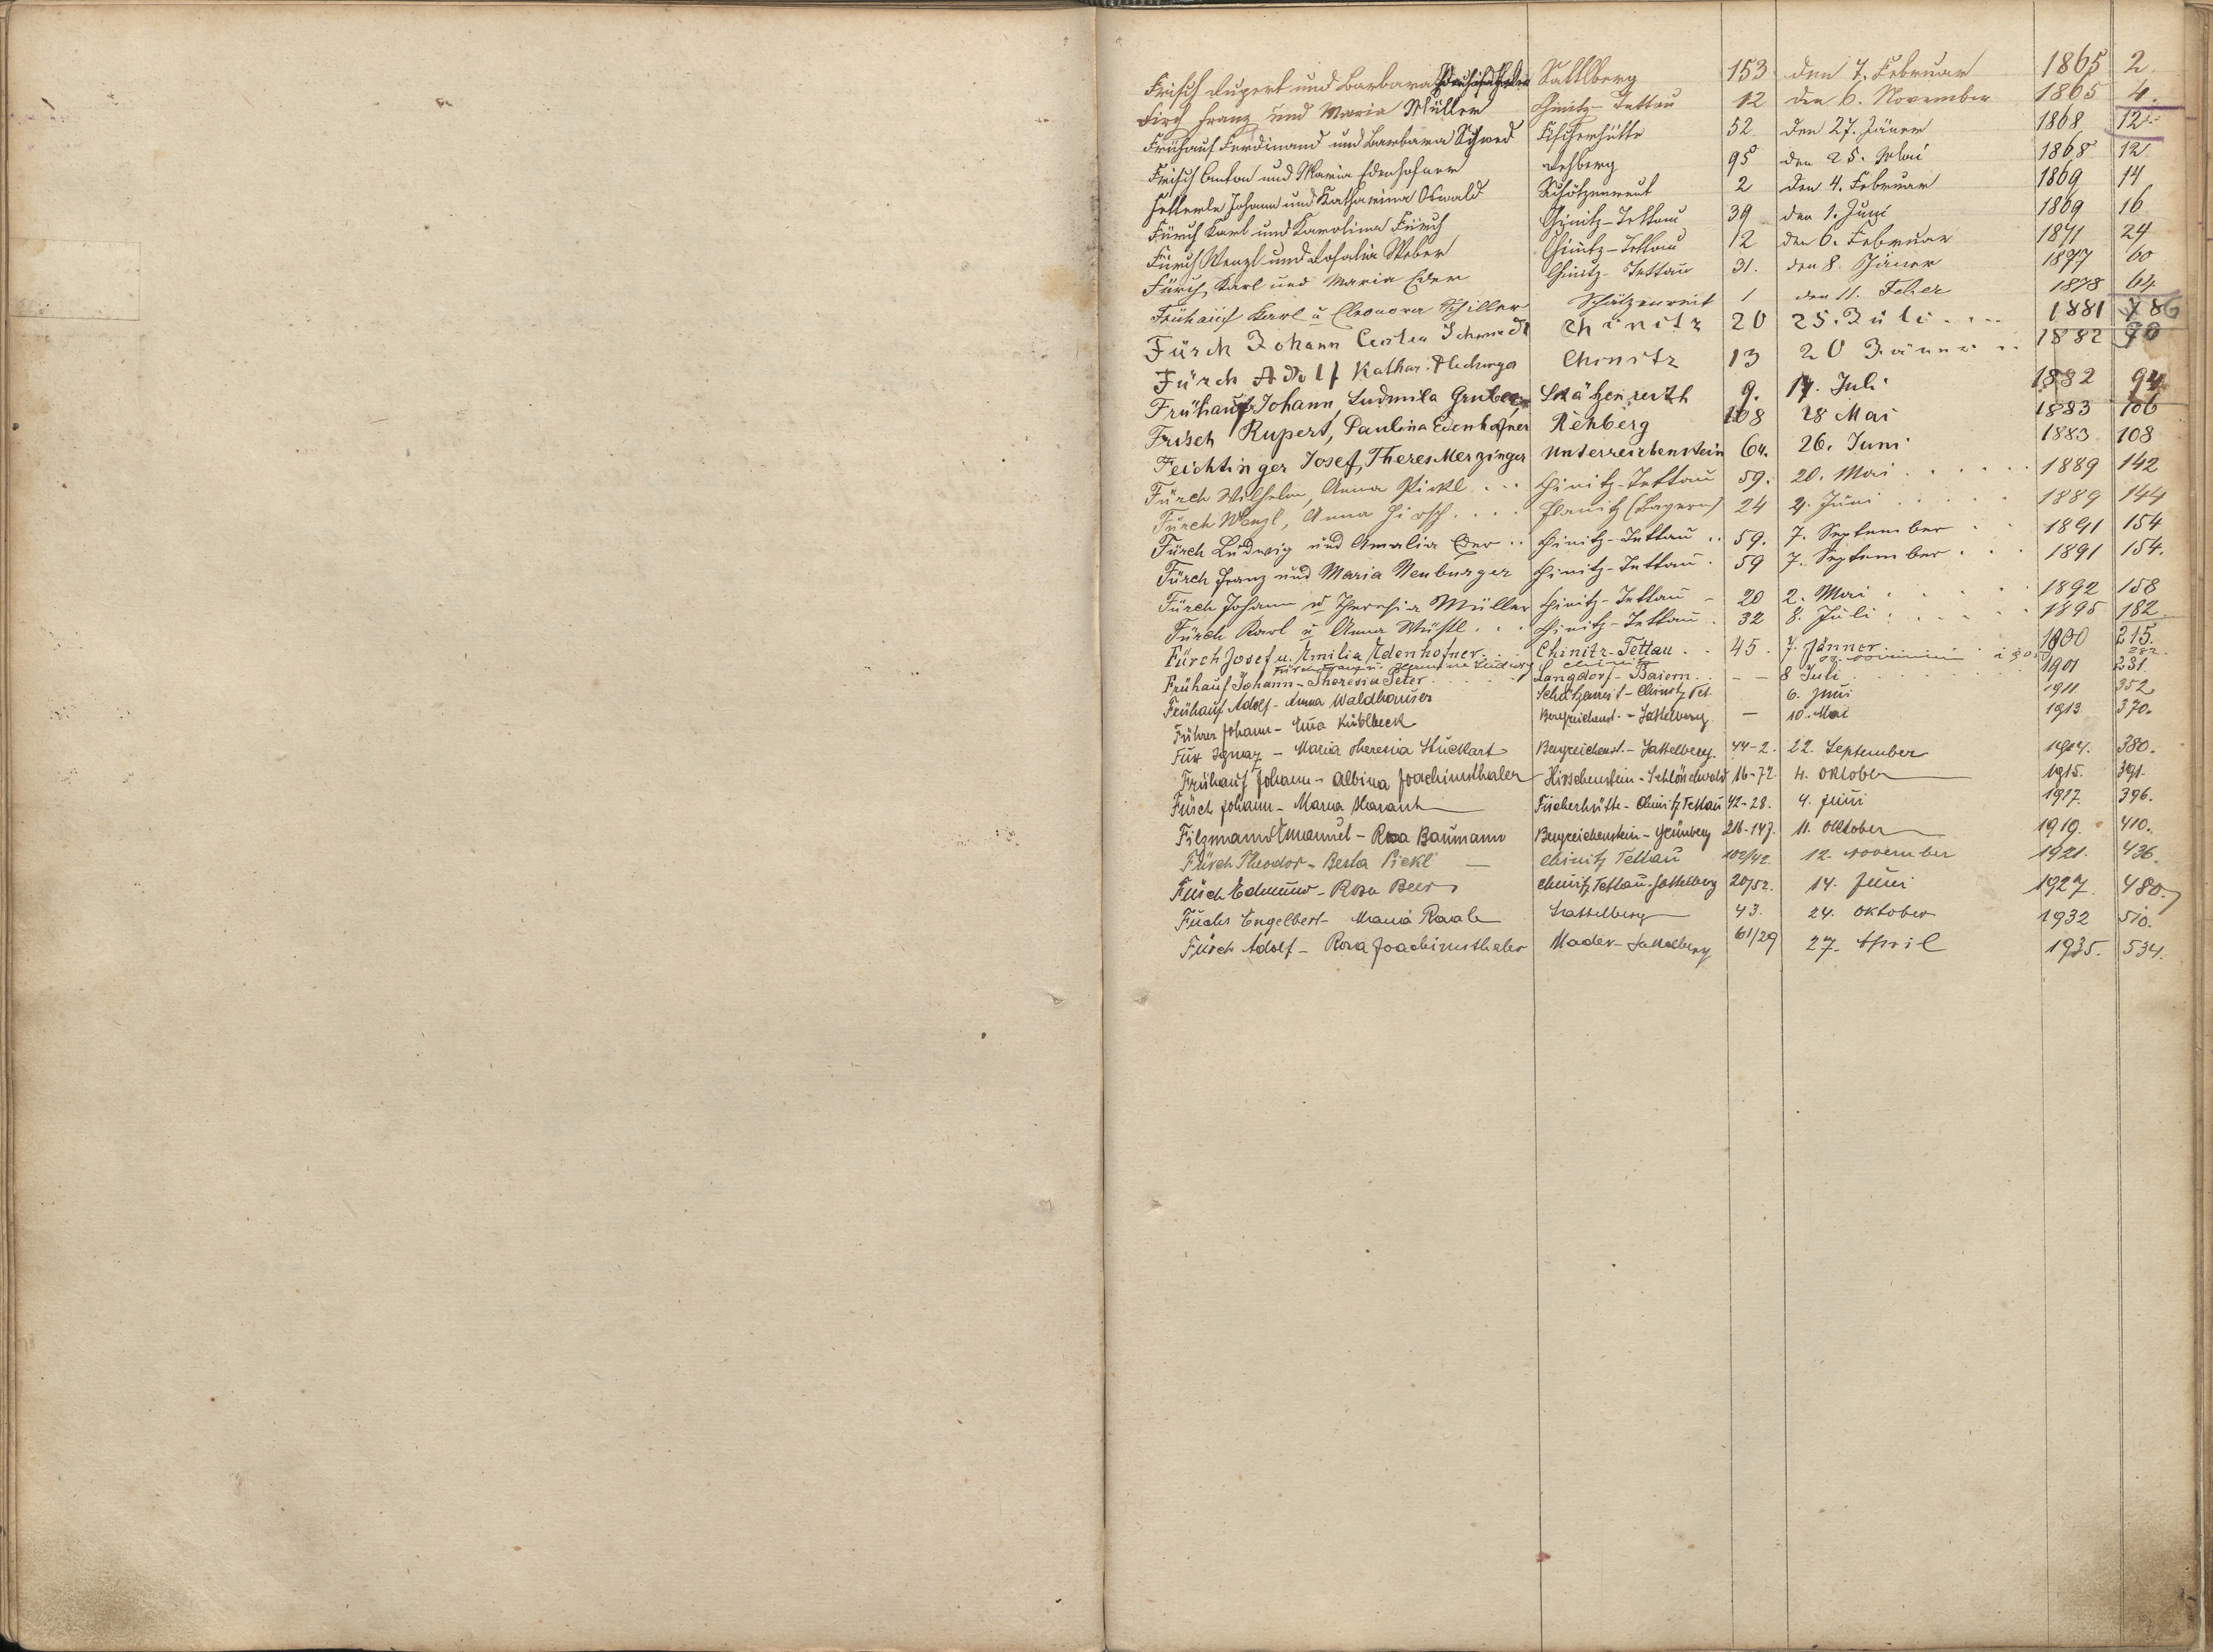 Frisch Rupert und Barbara Sattlberg 153 den 7. Februar 1865 2
Firch Franz und Maria Müller Chinitz-Tettau 12 den 6. November 1865 4.
Frühauf Ferdinand und Barbara Schmed Fischerhütte 52 den 27. Jäner 1868 12.
Frisch Anton und Maria Edenhofner Rehberg 95 den 25. Mai 1868 12.
Johann und Katharina Oswald Schätzenreut 2 den 4. Februar 1869 14
Fürch Karl und Karolina Fürch Chinitz-Tettau 39 den 1. Juni 1869 16
Fürch Wenzl und Rosalia Weber Chinitz-Tettau 12 den 6. Februar 1871 24
Fürch Karl und Maria Eder Chinitz-Tettau 31. den 8. Jäner 1877 60
Frühauf Karl u Eleonora Schiller Schätzenreit 1 den 11. Feber 1878 64
Fürch Johann Schmidt Chinitz 20 25. Juli 1881 86
Fürch Adolf Kathar. Chinitz 13 20 Jänner 1882 90
Frühauf Johann, Ludmila Gruber Schätzenreith 9. 17. Juli 1882 94
Frisch Rupert, Paulina Edenhofner Rehberg 108 28 Mai 1883 106
Feichtinger Josef, Theres Merzinger Unterreichenstein 64. 26. Juni 1883 108
Fürch Wilhelm, Anna Pickl Chinitz-Tettau 59. 20. Mai 1889 142
Fürch Wenzl, Anna Hirsch (Bayern) 24 4. Juni 1889 144
Fürch Ludwig und Amalia Eder Chinitz-Tettau 59. 7. September 1891 154
Fürch Franz und Maria Neuburger Chinitz-Tettau 59 7. September 1891 154.
Fürch Johann u Theresia Müller Chinitz-Tettau 20 2. Mai 1892 158
Fürch Karl u Anna Wüstl Chinitz-Tettau 32 8. Juli 1895 182
Fürch Josef u. Emilia Edenhofner Chinitz-Tettau 45 7. Jänner 1900 215.
Fürch Franz u. Hermine Ludwig Chinitz 282
Frühauf Johann - Theresia Peter Langdorf - Baiern - - 8 Juli 1901 231.
Frühauf Adolf - Anna Waldhauser Schätzenreit - Chinitz Tet. 6. Juni 1911 352
Führer Johann - Ema Kühlbeck Bergreichenst. - Sattelberg - 10. Mai 1913 370.
Fux Ignaz - Maria Theresia Stuckart Bergreichenst. - Sattelberg. 44-2. 22. September 1914. 380.
Frühauf Johann - Albina Joachimsthaler Hirschenstein - Schlösselwald 16-72. 4. Oktober 1915. 391.
Fürch Johann - Maria Harant Fischerhütte - Chinitz Tettau 42-28. 4. Juni 1917. 396.
Filzmann Emanuel - Rosa Baumann Bergreichenstein - Grünberg 216-147. 11. Oktober 1919. 410.
Fürch Theodor - Berta Pickl - Chinitz Tettau 102/42. 12. November 1921. 436.
Fürch Edmund - Rosa Beer Chinitz Tettau - Sattelberg 20/52. 14. Juni 1927. 480.
Fuchs Engelbert - Maria Raab Sattelberg 43. 24. Oktober 1932 510.
Fürch Adolf - Rosa Joachimsthaler Mader - Sattelberg 61/29 27. April 1935. 534.